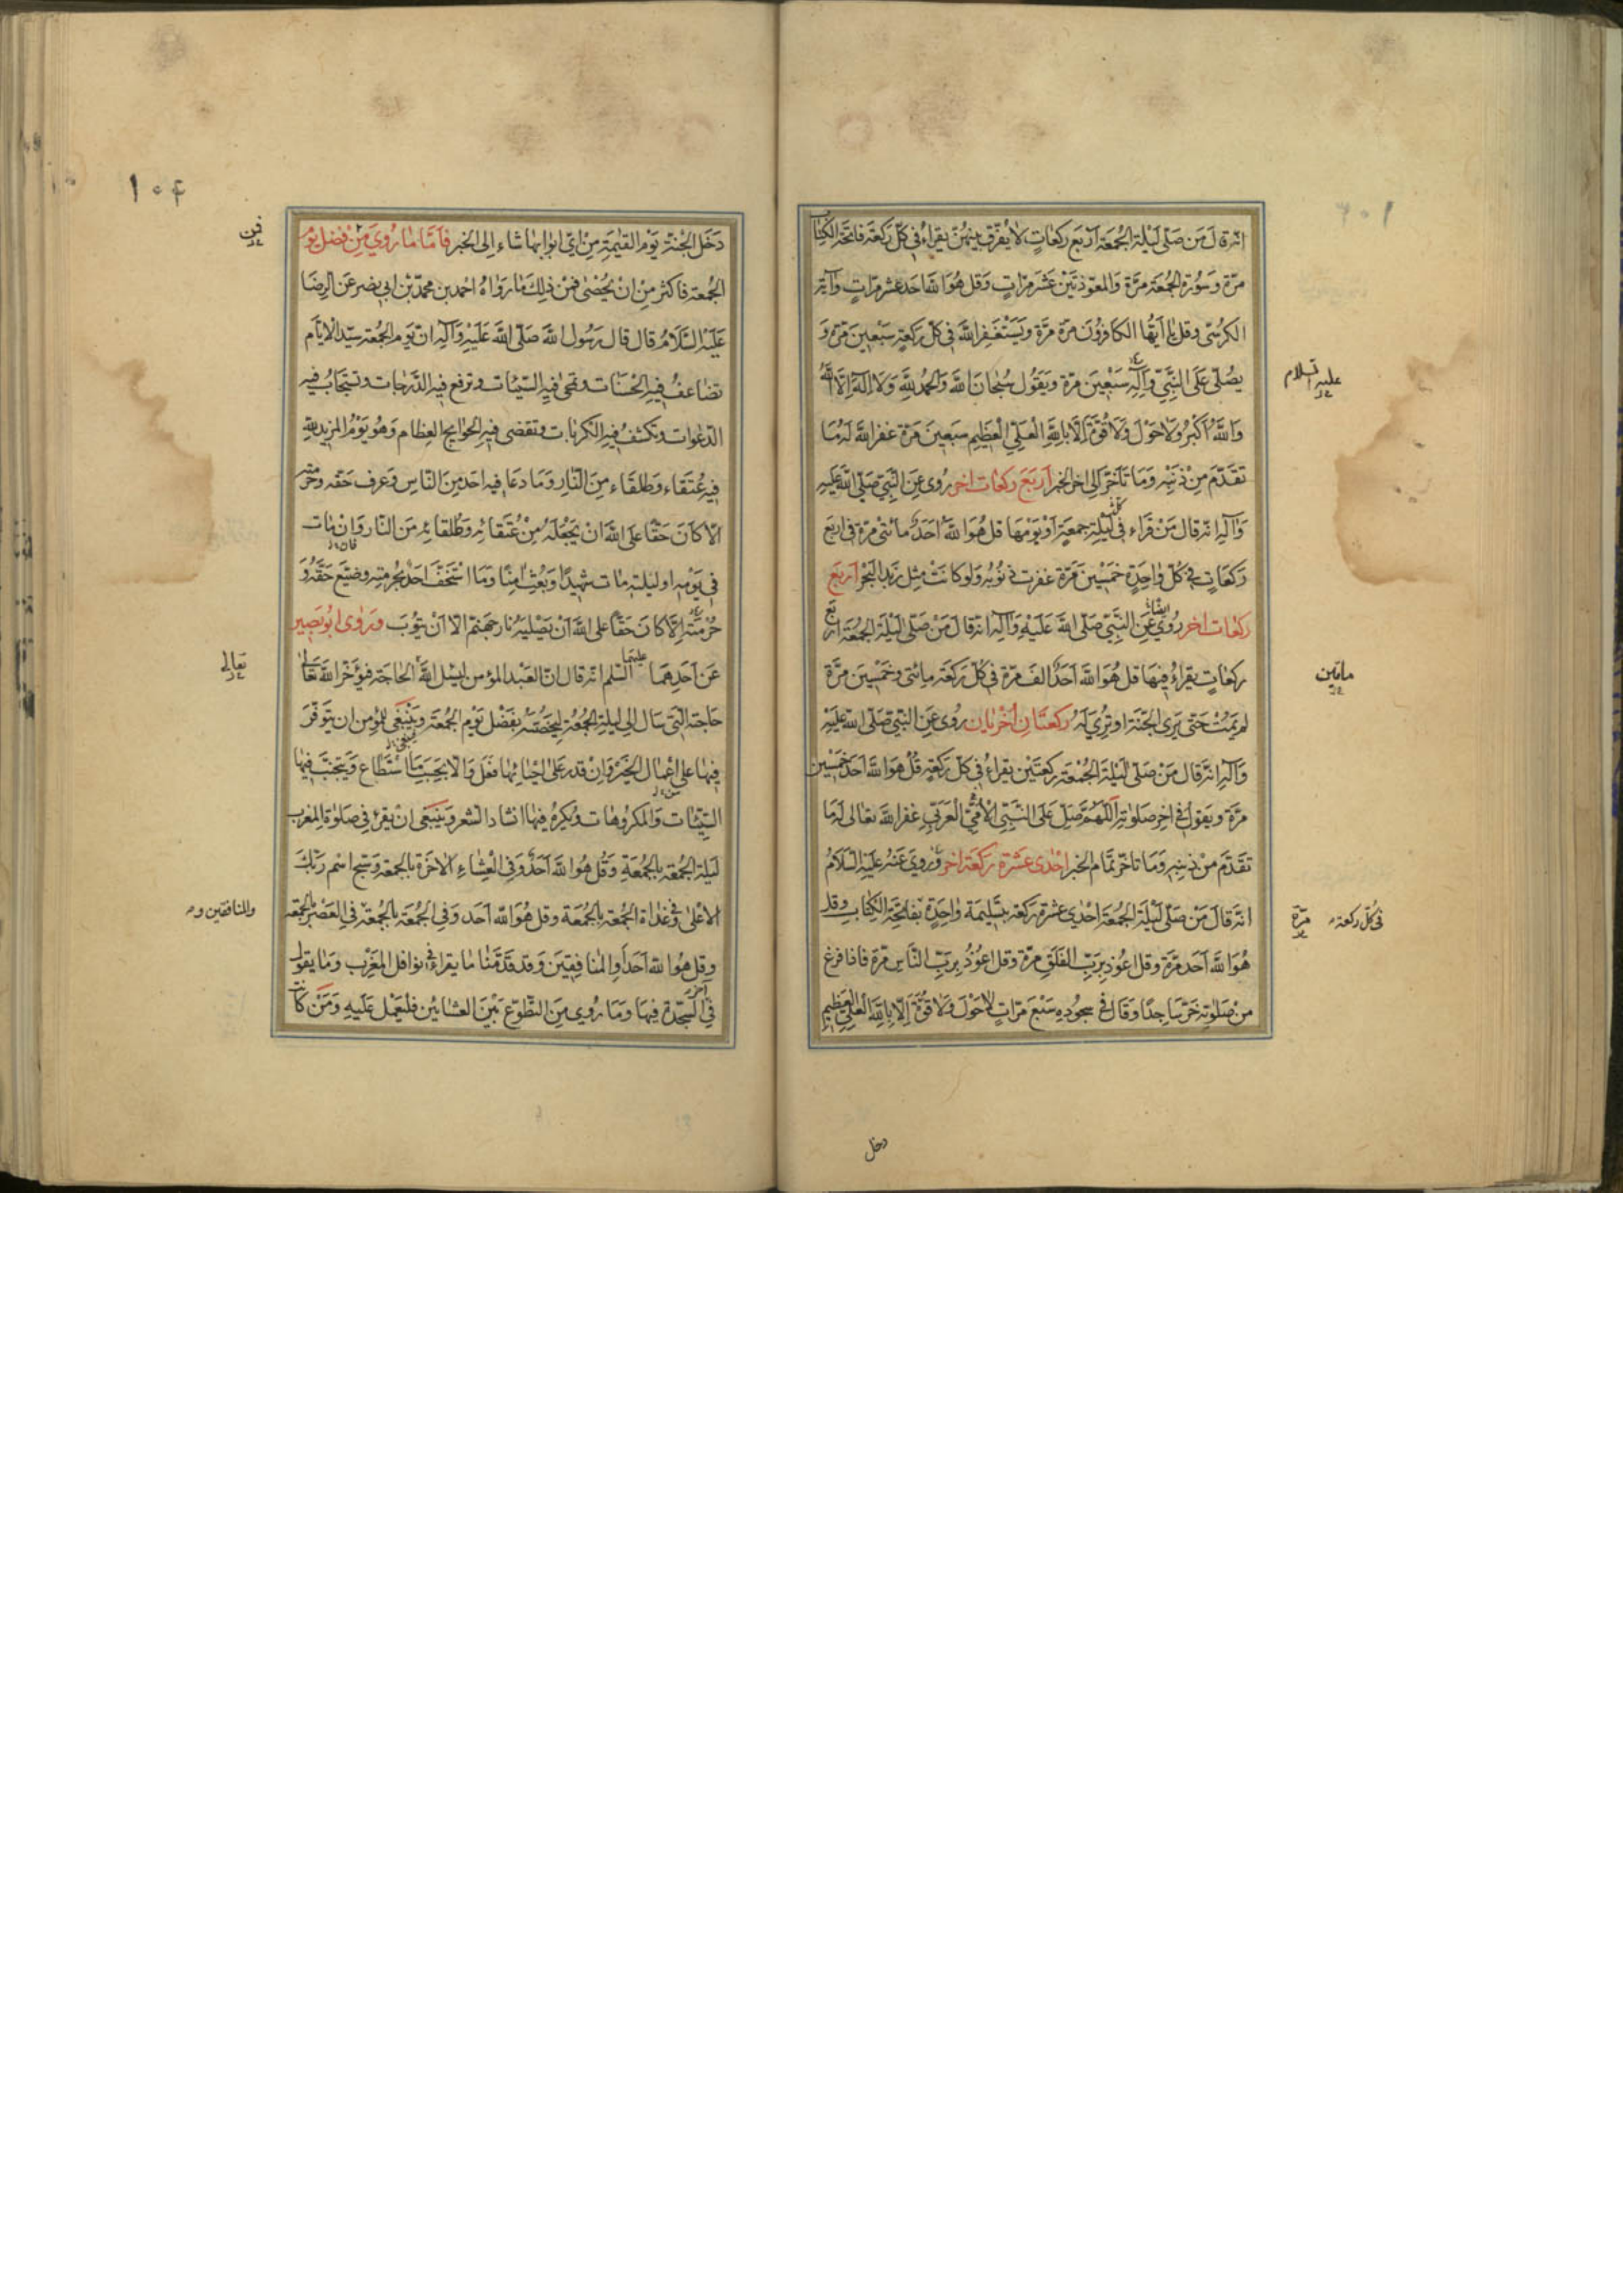 انه قال من صلى ليلة الجمعة اربع ركعات لا يفرق بينهن يقراء في كل ركعة فاتحة الكتاب
مرة وسورة الجمعة مرة والمعوذتين عشر مرات وقل هو الله احد عشر مرات وآية
الكرسي وقل يا ايها الكافرون مرة مرة ويستغفر الله في كل ركعة سبعين مرة و
يصلى على النبي وآله سبعين مرة ويقول سبحان الله والحمد لله ولا اله الا الله
عليه السلام
والله اكبر ولا حول ولا قوة الا بالله العلي العظيم سبعين مرة غفر الله له ما
تقدم من ذنبه وما تأخر الى اخر الخبر اربع ركعات اخر روى عن النبي صلى الله عليه
وآله انه قال من قراء في ليلة جمعة او يومها قل هو الله احد مائتي مرة في اربع
ركعات في كل واحدة خمسين مرة غفرت ذنوبه ولو كانت مثل زبد البحر اربع
ركعات اخر روي ايضا عن النبي صلى الله عليه وآله انه قال من صلى ليلة الجمعة اربع
ركعات يقراء فيها قل هو الله احد الف مرة في كل ركعة مائتى وخمسين مرة
مأتين
لم يمت حتى يرى الجنة او ترى له ركعتان اخريان روى عن النبي صلى الله عليه
وآله انه قال من صلى ليلة الجمعة ركعتين يقراء في كل ركعة قل هو الله احد خمسين
مرة ويقول في اخر صلوته اللهم صل على النبي الأمي العربي غفر الله تعالى له ما
تقدم من ذنبه وما تاخر تمام الخبر احدى عشرة ركعة اخر وروي عنه عليه السلام
انه قال من صلى ليلة الجمعة احدى عشرة ركعة بتسليمة واحدة بفاتحة الكتاب وقل
في كل ركعة مرة
هو الله احد مرة وقل اعوذ برب الفلق مرة وقل اعوذ برب الناس مرة فاذا فرغ
من صلوته خر ساجدا وقال في سجوده سبع مرات لا حول ولا قوة الا بالله العلي العظيم
دخل
١٠٤
دخل الجنة يوم القيمة من اي ابوابها شاء الى الخبر فاما ما روي من فضل يوم
فمن
الجمعة فاكثر من ان يحصى فمن ذلك ما رواه احمد بن محمد بن ابي بصر عن الرضا
عليه السلام قال قال رسول الله صلى الله عليه وآله ان يوم الجمعة سيد الايام
تضاعف فيه الحسنات وتمحى فيه السيئات وترفع فيه الدرجات وتستجاب فيه
الدعوات وتكشف فيه الكربات وتقضى فيه الحوايج العظام وهو يوم المزيد لله
فيه عتقاء وطلقاء من النار وما دعا فيه احد من الناس وعرف حقه وحرمته
الا كان حقا على الله ان يجعله من عتقائه وطلقائه من النار وان مات
في يومه او ليلته مات شهيدا وبعث امنا وما استخف احد بحرمته وضيع حقه و
حرمته الا كان حقا على الله ان يصليه نار جهنم الا ان يتوب وروى ابو بصير
عن احدهما عليهما السلم انه قال ان العبد المؤمن ليسئل الله الحاجة فيؤخر الله تعالى
تعالى
حاجته التي سال الى ليلة الجمعة ليخصه بفضل يوم الجمعة وينبغي للمؤمن ان يتوفر
فيها على اعمال الخير وان قدر على احيائها فعل والا بحسب ما استطاع ويتجنب فيها
السيئات والمكروهات ويكره فيها انشاد الشعر وينبغى ان يقرء في صلوة المغرب
ليلة الجمعة بالجمعة وقل هو الله احد وفي العشاء الاخرة بالجمعة وسبح اسم ربك
الاعلى وفي غداة الجمعة بالجمعة وقل هو الله احد وفي الجمعة بالجمعة في العصر بالجمعة
والمنافقين و
وقل هو الله احد او المنافقين وقد قدمنا ما يقراء في نوافل المغرب وما يقول
في آخر السجدة فيها وما روي من التطوع بين العشائين فليعمل عليه ومن كانت